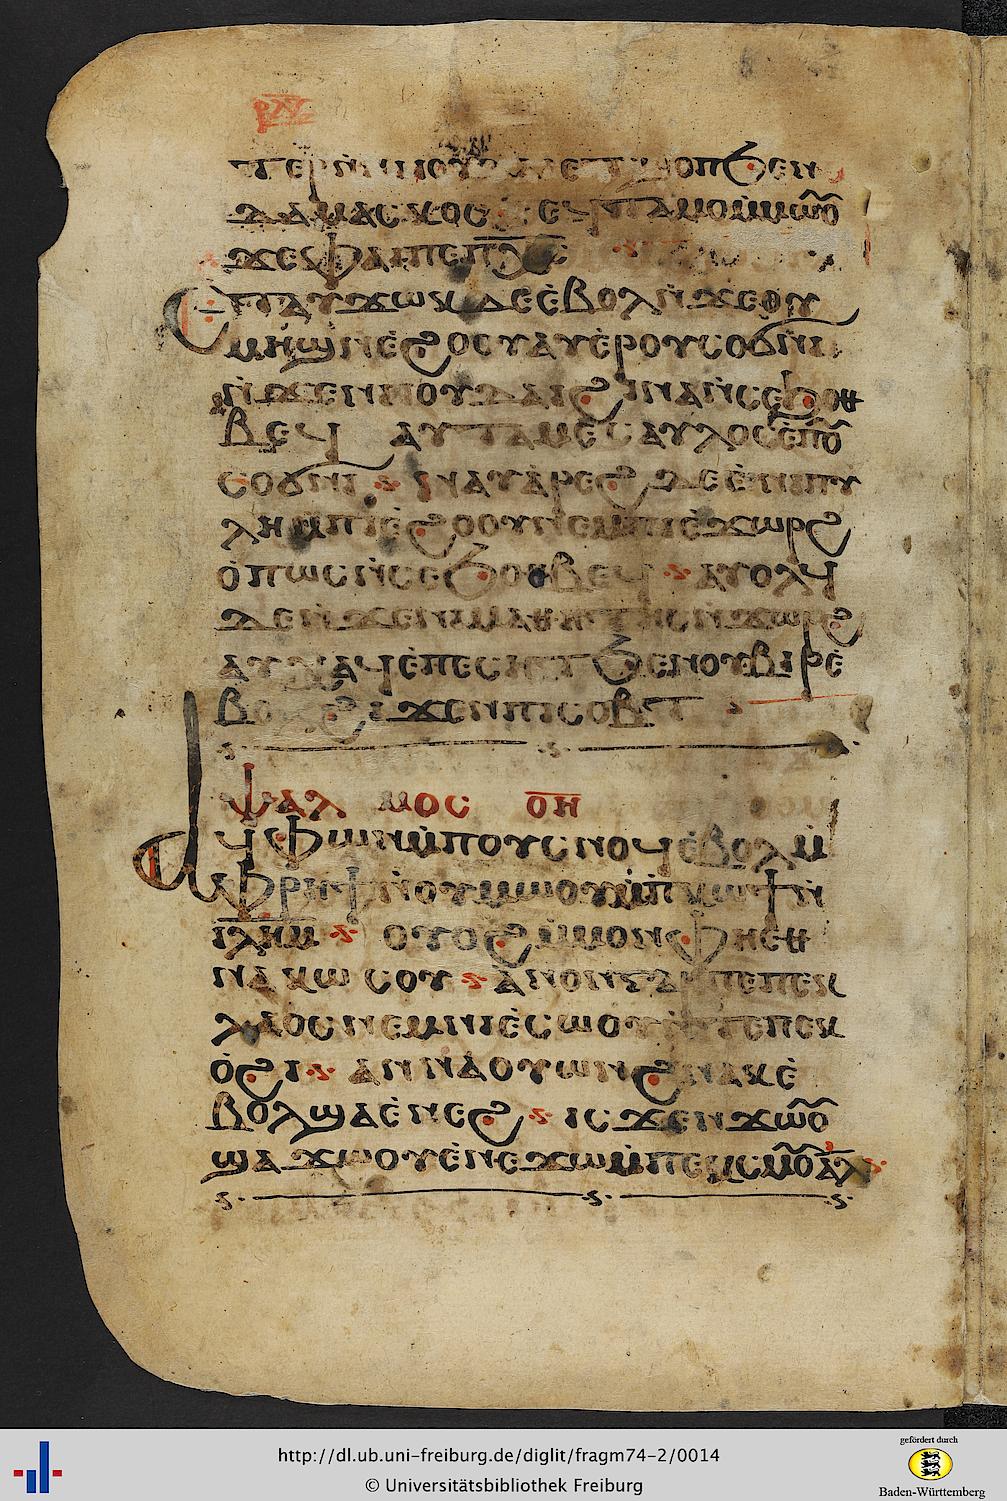 ⲇⲁⲙⲁⲥⲕⲟⲥ ⲉϥⲧⲁⲙⲟⲙⲙⲱⲟⲩ
ϫⲉⲫⲁⲓⲡⲉⲡⲭ̅ⲥ̅
ⲉⲧⲁⲩϫⲱⲕ ⲇⲉⲉ̀ⲃⲟⲗⲛ̀ϫⲉⲟⲩ
ⲙⲏϣⲛⲉ̀ϩⲟⲟⲩⲁⲩⲉⲣⲟⲩⲥⲟϭⲛⲓ
ⲛ̀ϫⲉⲛⲓⲟⲩⲇⲁⲓ ϩⲓⲛⲁⲛ̀ⲥⲉϧⲟⲑ
ⲃⲉϥ ⲁⲩⲧⲁⲙⲉⲥⲁⲩⲗⲟⲥⲉ̀ⲡⲟⲩ
ⲥⲟϭⲛⲓ ⲛⲁⲩⲁ̀ⲣⲉϩ ⲇⲉⲉ̀ⲛⲓⲡⲩ
ⲗⲏⲙⲡⲓⲉ̀ϩⲟⲟⲩⲛⲉⲙⲡⲓⲉ̀ϫⲱⲣϩ
ⲟ̀ⲡⲱⲥⲛ̀ⲥⲉϧⲟⲑⲃⲉϥ ⲁⲩⲟⲗϥ
ⲇⲉⲛ̀ϫⲉⲛⲓⲙⲁⲑⲏⲧⲏⲥⲛ̀ϫⲱⲣϩ
ⲁⲩⲭⲁϥⲉ̀ⲡⲉⲥⲏⲧϧⲉⲛⲟⲩⲃⲓⲣⲉ̀
ⲃⲟⲗϩⲓϫⲉⲛⲡⲓⲥⲟⲃⲧ
ⲯⲁⲗⲙⲟⲥ ⲟ̅ⲏ̅
ⲁⲩⲫⲱⲛⲙ̀ⲡⲟⲩⲥⲛⲟϥⲉ̀ⲃⲟⲗⲙ̀
ⲫⲣⲏϯⲛ̀ⲟⲩⲙⲱⲟⲩⲙ̀ⲡⲕⲱϯⲛ̀
ⲓ̅ⲗ̅ⲏ̅ⲙ̅ ⲟⲩⲟϩⲙ̀ⲙⲟⲛⲫⲏⲉⲑ
ⲛⲁⲕⲱⲥⲟⲩ ⲁ̀ⲛⲟⲛⲇⲉϧⲁⲡⲉⲕ
ⲗⲁⲟⲥⲛⲉⲙⲛⲓⲉ̀ⲥⲱⲟⲩⲛ̀ⲧⲉⲡⲉⲕ
ⲟ̀ϩⲓ ⲁⲛⲛⲁⲟⲩⲱⲛϩⲛⲁⲕⲉ̀
ⲃⲟⲗϣⲁⲉ̀ⲛⲉϩ ⲓⲥϫⲉⲛϫⲱⲟⲩ
ϣⲁϫⲱⲟⲩⲉ̀ⲛⲉϫⲱⲙ̀ⲡⲉⲕⲥⲙⲟⲩ ⲁ̅ⲗ̅
http://dl.ub.uni-freiburg.de/diglit/fragm74-2/0014
© Universitätsbibliothek Freiburg
gefördert durch
Baden-Württemberg